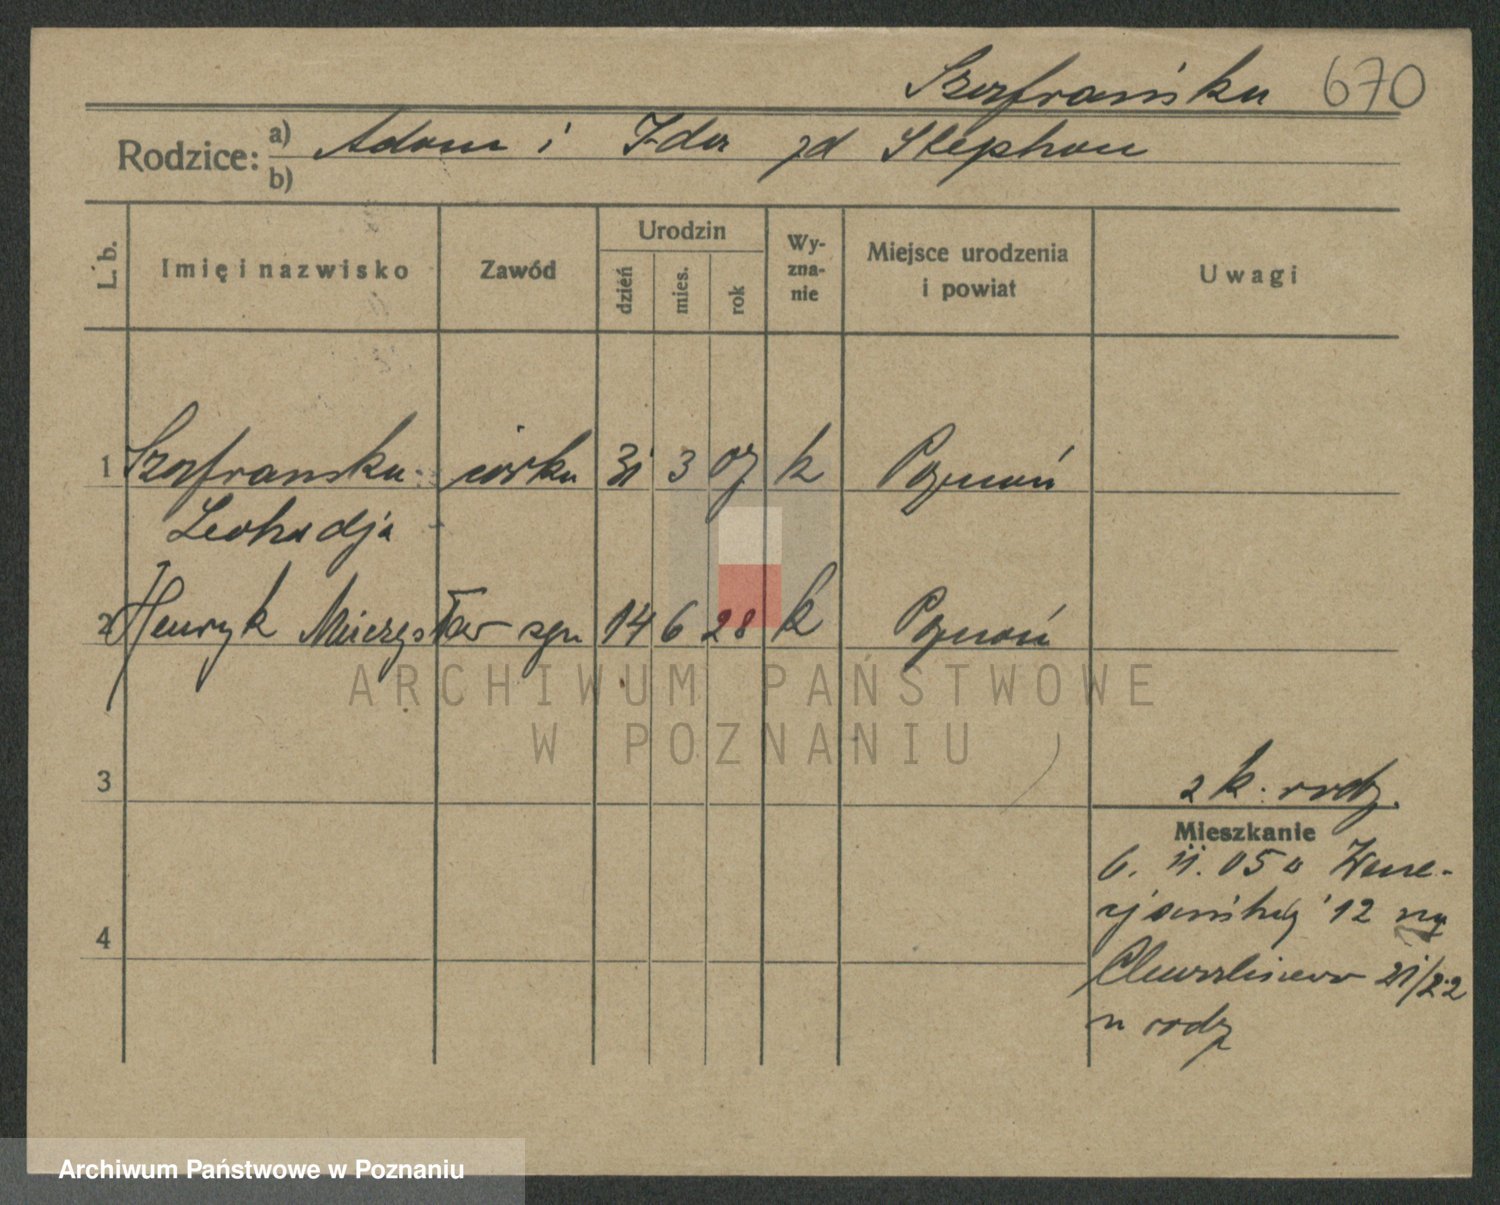 Szafrańska 670
Rodzice: a) Adam i Ida zd Stephan
b)
L. b. Imię i nazwisko Zawód Urodzin dzień mies. rok Wy-zna-nie Miejsce urodzenia i powiat Uwagi
1 Szafranska córka 31 3 07 k Poznań
Leokadja
2 Henryk Mieczysław syn 14 6 28 k Poznań
ARCHIWUM PAŃSTWOWE
W POZNANIU
3
2 k. rodz.
Mieszkanie
6. 11. 05
12
4
21/22
u rodz
Archiwum Państwowe w Poznaniu